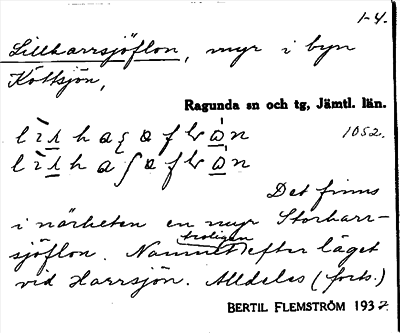 1-4.
Lillharrsjöflon, myr i byn
Köttsjön,
Ragunda sn och tg, Jämtl. län.
1052.
Det finns
i närheten en myr Storharr-
sjöflon. Namnet troligen efter läget
vid Harrsjön. Alldeles (forts.)
BERTIL FLEMSTRÖM 1937